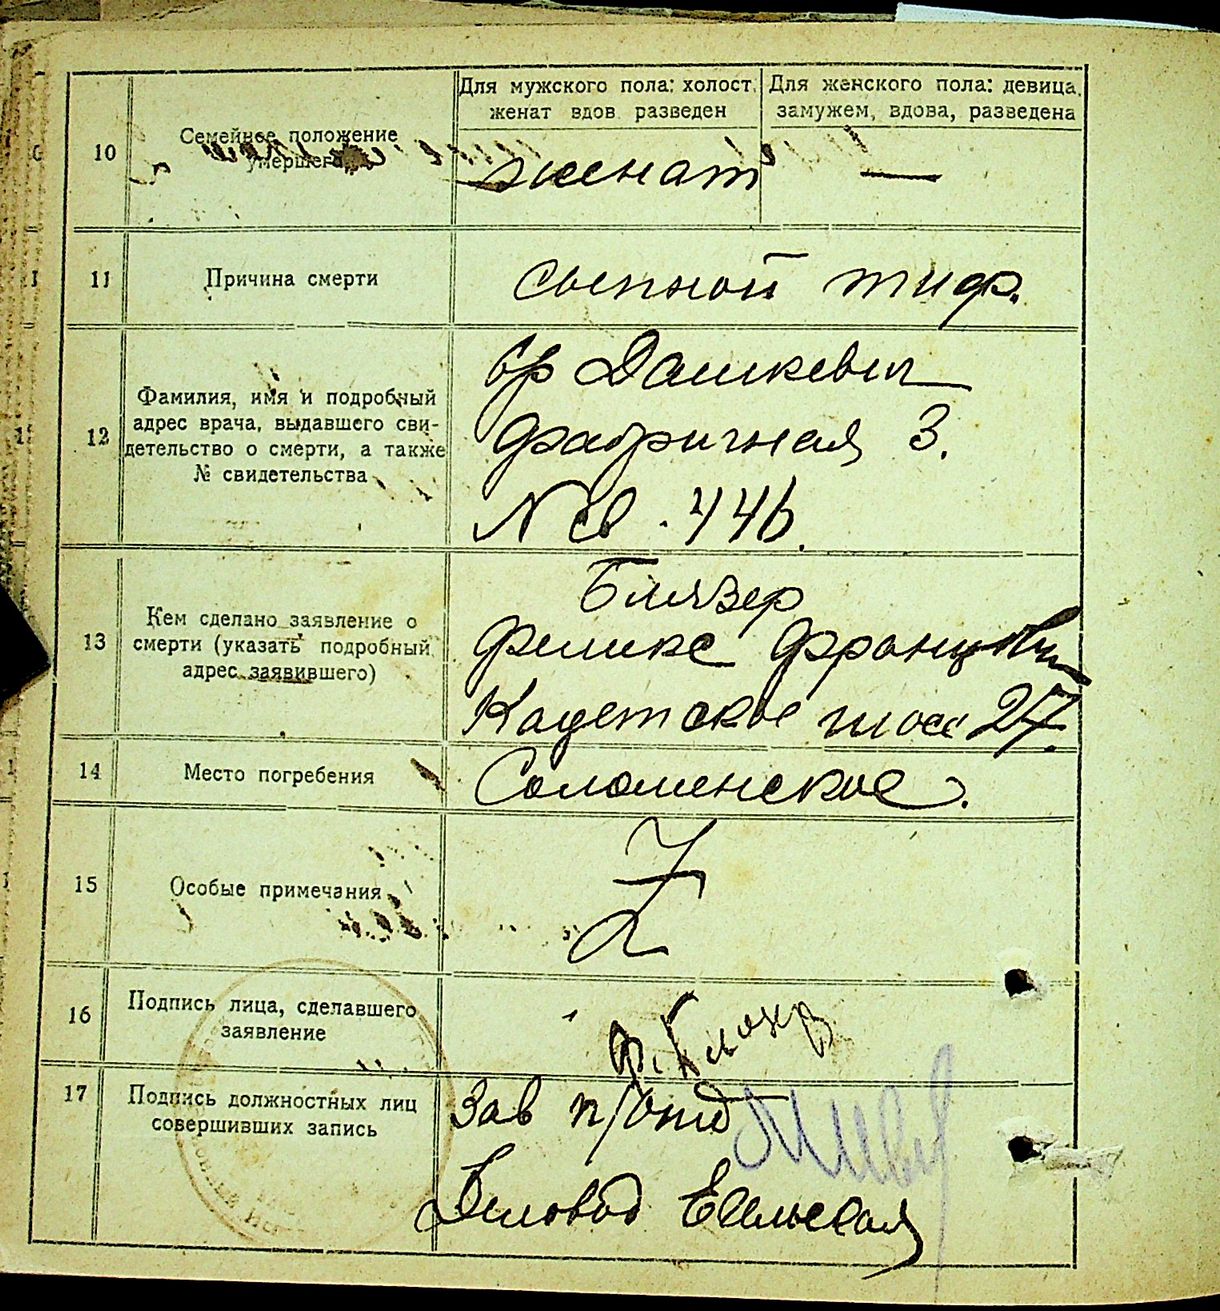 Для мужского пола: холост, женат вдов разведен
Для женского пола: девица, замужем, вдова, разведена
10
Семейное положение
умершего
женат
—
11
Причина смерти
сыпной тиф.
12
Фамилия, имя и подробный
адрес врача, выдавшего сви-
детельство о смерти, а также
№ свидетельства
вр Дашкевич
Фабричная 3.
N св. 446.
13
Кем сделано заявление о
смерти (указать подробный
адрес заявившего)
Феликс Францович
Кадетское шосс 27.
14
Место погребения
Соломенское.
15
Особые примечания
Z
16
Подпись лица, сделавшего
заявление
17
Подпись должностных лиц
совершивших запись
Зав п/отд
Деловод